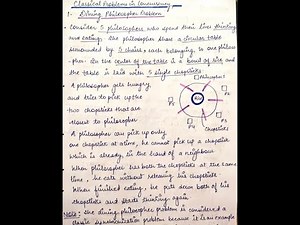 Classical Problems in Concurrency
1- Dining Philosopher Problem
- Consider 5 philosophers who spend their lives thinking
and eating. The philosopher share a circular table
surrounded by 5 chairs each belonging to one philoso-
pher. In the center of the table is a bowl of rice and
the table is laid with 5 single chopsticks
A philosopher gets hungry
and tries to pick up the
two chopsticks that are
closest to philosopher
A philosopher can pick up only
one chopstick at a time, he cannot pick up a chopstick
which is already in the hand of a neighbour
When philosopher has both the chopsticks at the same
time, he eats without releasing his chopsticks.
When finished eating, he puts down both of his
chopsticks and starts thinking again
Note: The dining philosopher problem is considered a
classic synchronization problem because it is an example
Chopsticks